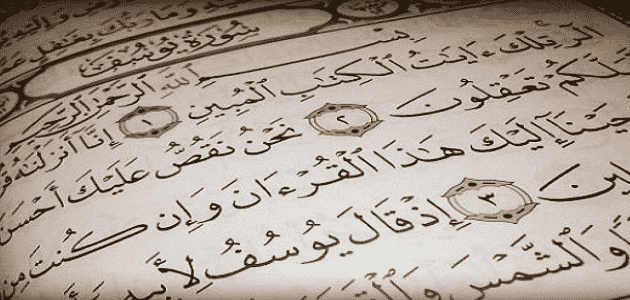 وَمَا رَبُّكَ بِغَٰفِلٍ
سُورَةُ يُوسُفَ
بِسْمِ ٱللَّهِ ٱلرَّحْمَٰنِ ٱلرَّحِيمِ
الٓر تِلْكَ ءَايَٰتُ ٱلْكِتَٰبِ ٱلْمُبِينِ ١ إِنَّآ أَنزَلْنَٰهُ
لَّكُمْ تَعْقِلُونَ ٢ نَحْنُ نَقُصُّ عَلَيْكَ أَحْسَنَ
حَيْنَآ إِلَيْكَ هَٰذَا ٱلْقُرْءَانَ وَإِن كُنتَ مِن
لِينَ ٣ إِذْ قَالَ يُوسُفُ لِأَبِيهِ
وَٱلشَّمْسَ وَٱلْقَمَرَ